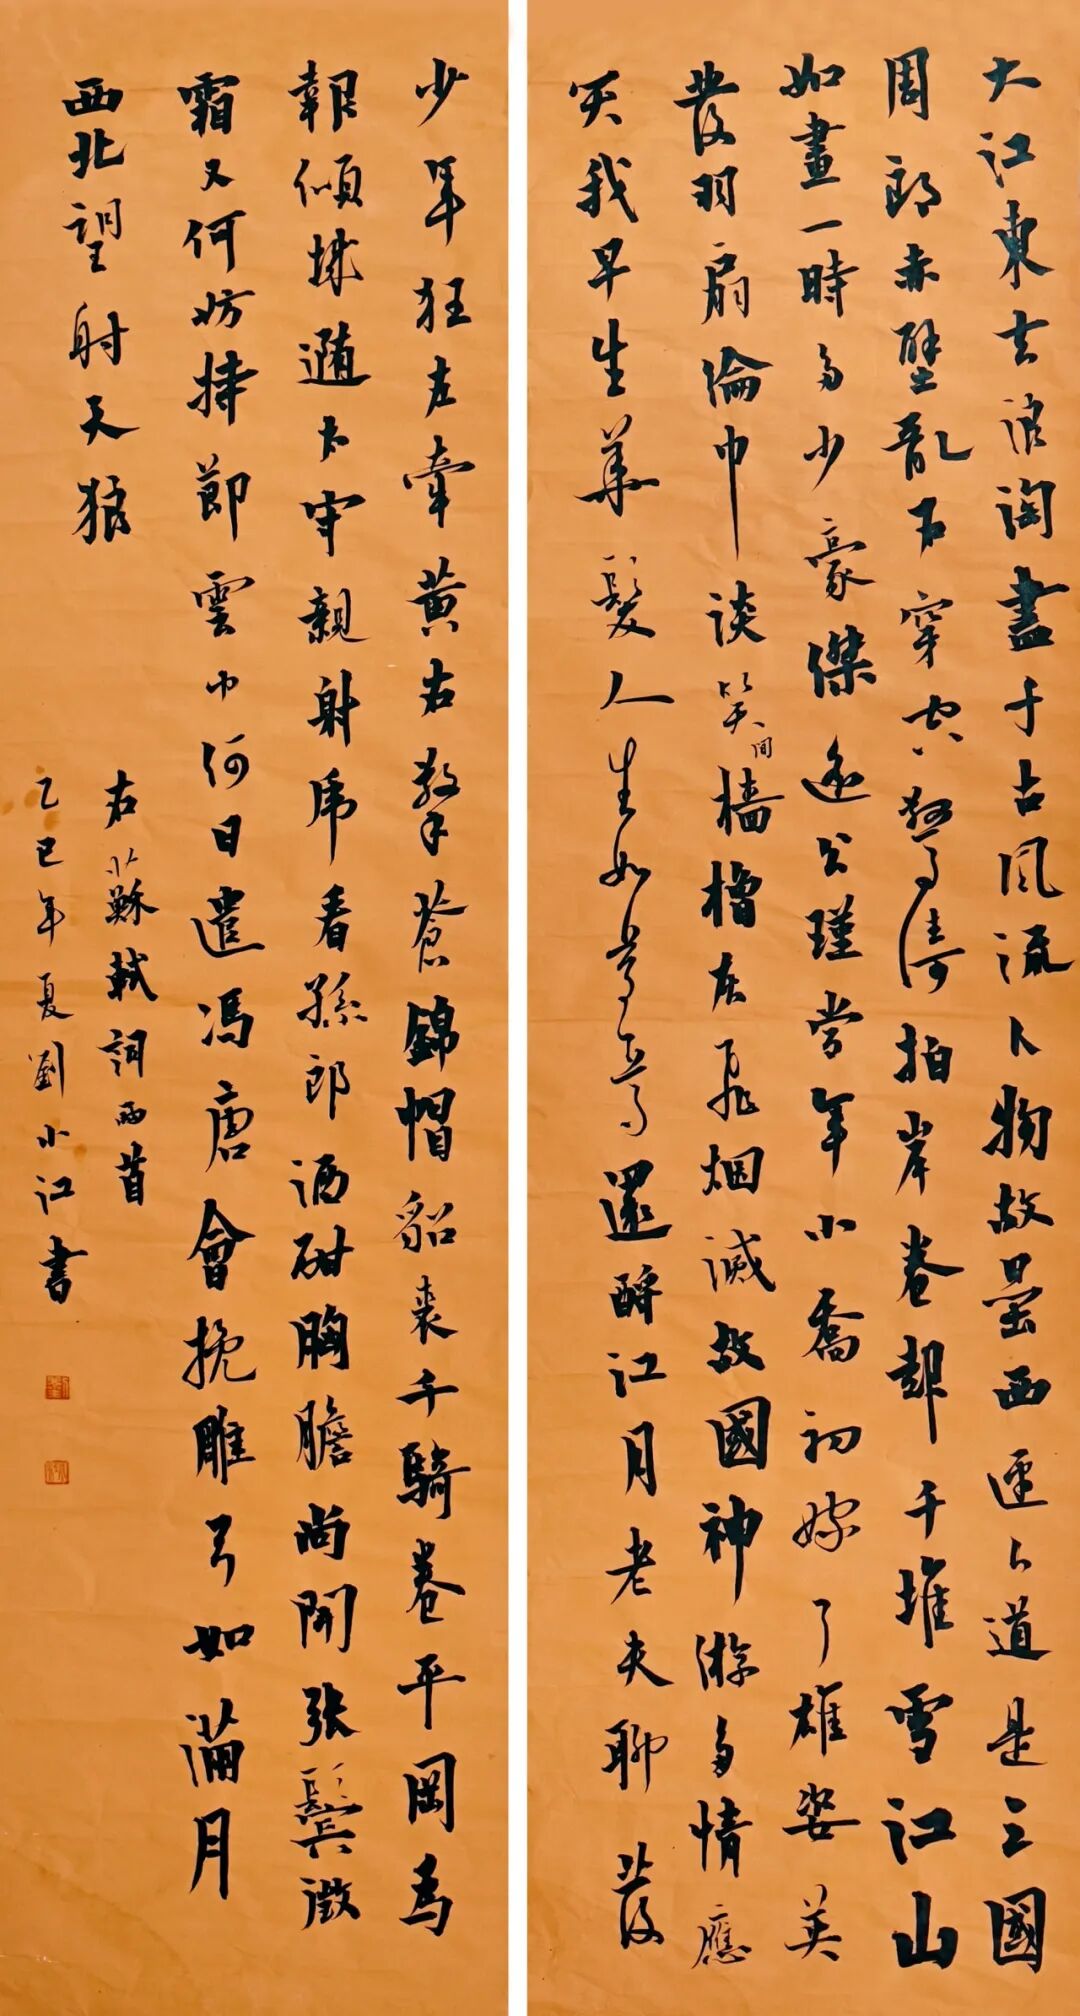 大江東去浪淘盡千古風流人物故壘西邊人道是三國
周郎赤壁亂石穿空驚濤拍岸卷起千堆雪江山
如畫一時多少豪傑遙公瑾當年小喬初嫁了雄姿英
發羽扇綸巾談笑間檣櫓灰飛烟滅故國神游多情應
笑我早生華髮人生如夢一尊還酹江月老夫聊發
少年狂左牽黃右擎蒼錦帽貂裘千騎卷平岡為
報傾城隨太守親射虎看孫郎酒酣胸膽尚開張鬢微
霜又何妨持節雲中何日遣馮唐會挽雕弓如滿月
西北望射天狼
右蘇軾詞兩首
乙巳年夏劉小江書